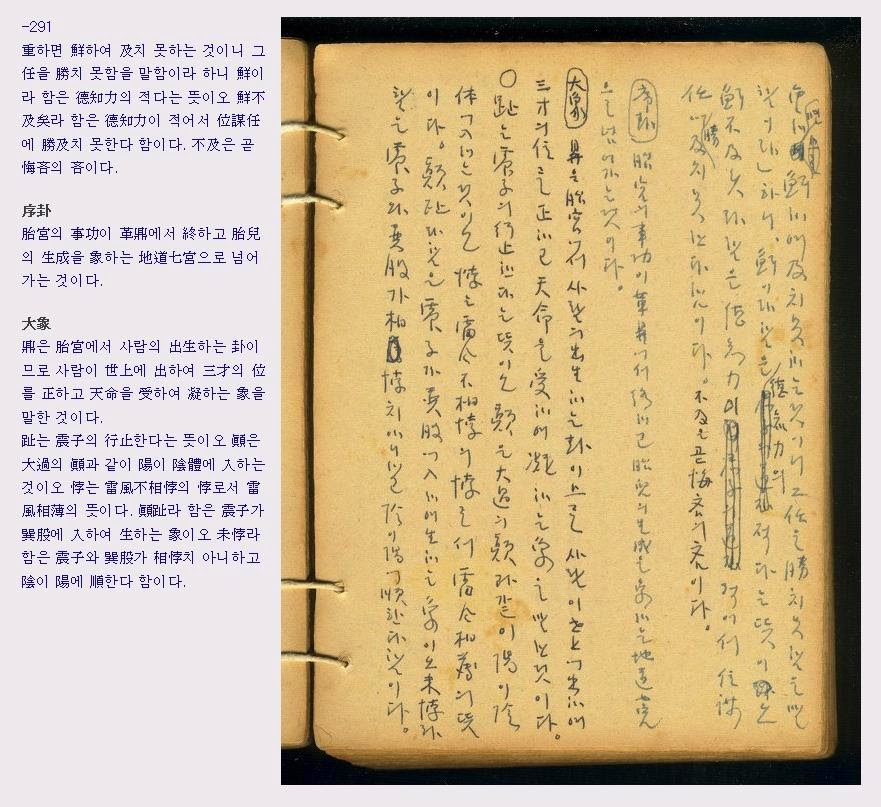 -291
重하면 鮮하여 及치 못하는 것이니 그
任을 勝치 못함을 말함이라 하니 鮮이
라 함은 德知力의 적다는 뜻이오 鮮不
及矣라 함은 德知力이 적어서 位謀任
에 勝及치 못한다 함이다. 不及은 곧
悔吝의 吝이다.
序卦
胎宮의 事功이 革鼎에서 終하고 胎兒
의 生成을 象하는 地道七宮으로 넘어
가는 것이다.
大象
鼎은 胎宮에서 사람의 出生하는 卦이
므로 사람이 世上에 出하여 三才의 位
를 正하고 天命을 受하여 凝하는 象을
말한 것이다.
趾는 震子의 行止한다는 뜻이오 顚은
大過의 顚과 같이 陽이 陰體에 入하는
것이오 悖는 雷風不相悖의 悖로서 雷
風相薄의 뜻이다. 顚趾라 함은 震子가
巽股에 入하여 生하는 象이오 未悖라
함은 震子와 巽股가 相悖치 아니하고
陰이 陽에 順한다 함이다.
鮮하여 及치 못하는 것이니 그 任을 勝치 못함을 말
함이라 하니 鮮이라 함은 德知力의 적다는 뜻이오
鮮不及矣라 함은 德知力이 적어서 位謀
任에 勝及치 못한다 함이다. 不及은 곧 悔吝의 吝이다.
序卦 胎宮의 事功이 革鼎에서 終하고 胎兒의 生成을 象하는 地道七宮
으로 넘어가는 것이다.
大象 鼎은 胎宮에서 사람의 出生하는 卦이므로 사람이 世上에 出하여
三才의 位를 正하고 天命을 受하여 凝하는 象을 말한 것이다.
○ 趾는 震子의 行止한다는 뜻이오 顚은 大過의 顚과 같이 陽이 陰
体에 入하는 것이오 悖는 雷風不相悖의 悖로서 雷風相薄의 뜻
이다. 顚趾라 함은 震子가 巽股에 入하여 生하는 象이오 未悖라
함은 震子와 巽股가 相悖치 아니하고 陰이 陽에 順한다 함이다.